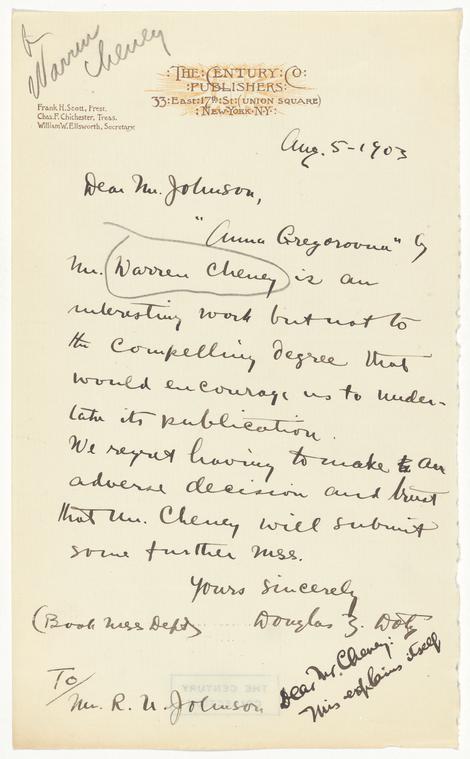 Warren
Cheney
THE CENTURY CO:
PUBLISHERS:
33 East 17th St (UNION SQUARE)
NEW YORK N·Y·
Frank H. Scott, Prest.
Chas. F. Chichester, Treas.
William W. Ellsworth, Secretary.
Aug. 5-1903
Dear Mr. Johnson,
"Anna Gregorovna" by
Mr. Warren Cheney is an
interesting work but not to
the compelling degree that
would encourage us to under-
take its publication.
We regret having to make an
adverse decision and trust
that Mr. Cheney will submit
some further mss.
Yours sincerely
(Book Mss Dept) Douglas Z. Doty
To/
Mr. R. U. Johnson
Dear Mr. Cheney:
This explains itself
THE CENTURY